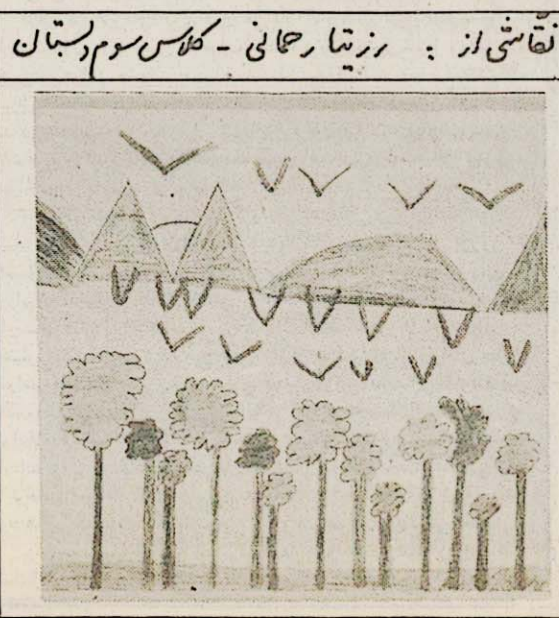 نقاشی از : رزیتا رحمانی - کلاس سوم دبستان